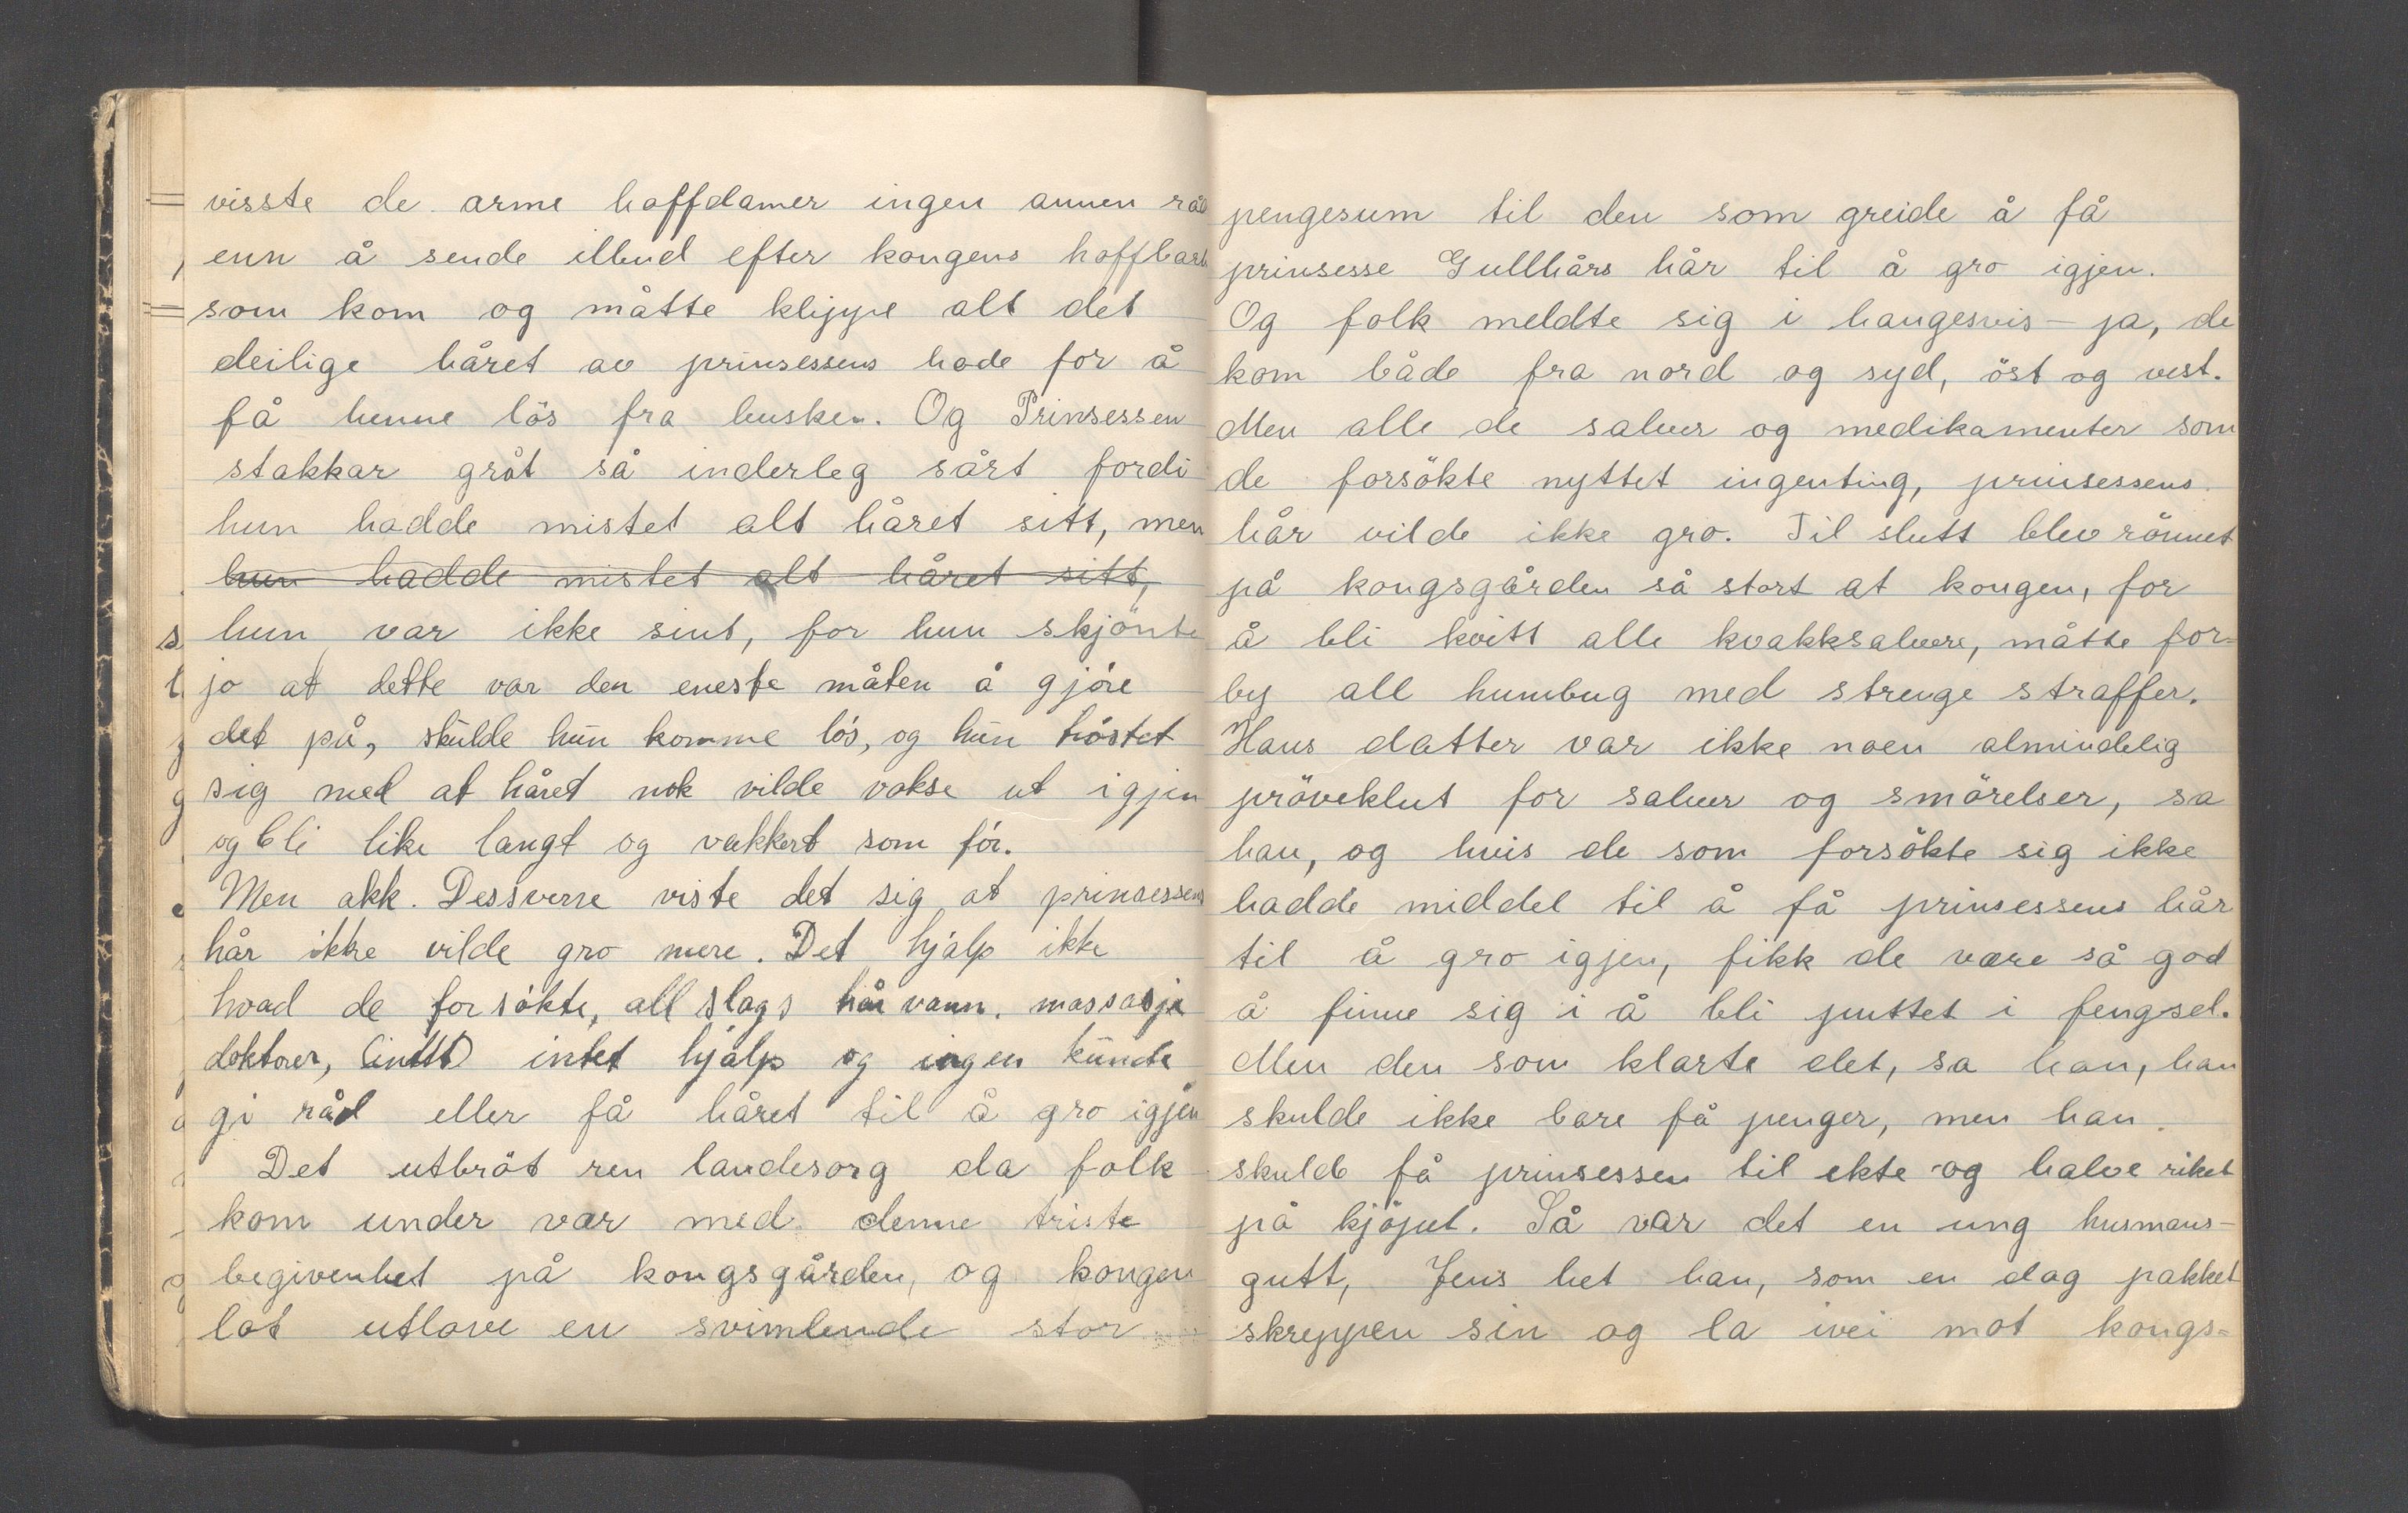 visste de arme hoffdamer ingen annen råd
enn å sende ilbud efter kongens hoffbarb
som kom og måtte klippe alt det
deilige håret av prinsessens hode for å
få henne lös fra husken. Og Prinsessen
stakkar gråt så inderleg sårt fordi
hun hadde mistet alt håret sitt, men
hun hadde mistet alt håret sitt,
hun var ikke sint, for hun skjönte
jo at dette var den eneste måten å gjöre
det på, skulde hun komme lös, og hun tröstet
sig med at håret nok vilde vokse ut igjen
og bli like langt og vakkert som för.
Men akk. Dessverre viste det sig at prinsessens
hår ikke vilde gro mere. Det hjalp ikke
hvad de forsökte, all slags hår vann, massasje
doktorer, (intet) intet hjalp og ingen kunde
gi råd eller få håret til å gro igjen
Det utbröt ren landesorg da folk
kom under vær med denne triste
begivenhet på kongsgården, og kongen
lot utlove en svimlende stor
pengesum til den som greide å få
prinsesse Gullhårs hår til å gro igjen.
Og folk meldte sig i haugesvis - ja, de
kom både fra nord og syd, öst og vest.
Men alle de salver og medikamenter som
de forsökte nyttet ingenting, prinsessens
hår vilde ikke gro. Til slutt blev rönnet
på kongsgården så stort at kongen, for
å bli kvitt alle kvakksalvere, måtte for=
by all humbug med strenge straffer.
Hans datter var ikke noen almindelig
pröveklut for salver og smörelser, sa
han, og hvis de som forsökte sig ikke
hadde middel til å få prinsessens hår
til å gro igjen, fikk de være så god
å finne sig i å bli puttet i fengsel.
Men den som klarte det, sa han, han
skulde ikke bare få penger, men han
skulde få prinsessen til ekte og halve riket
på kjöpet. Så var det en ung husmans-
gutt, Jens het han, som en dag pakket
skreppen sin og la ivei mot kongs=